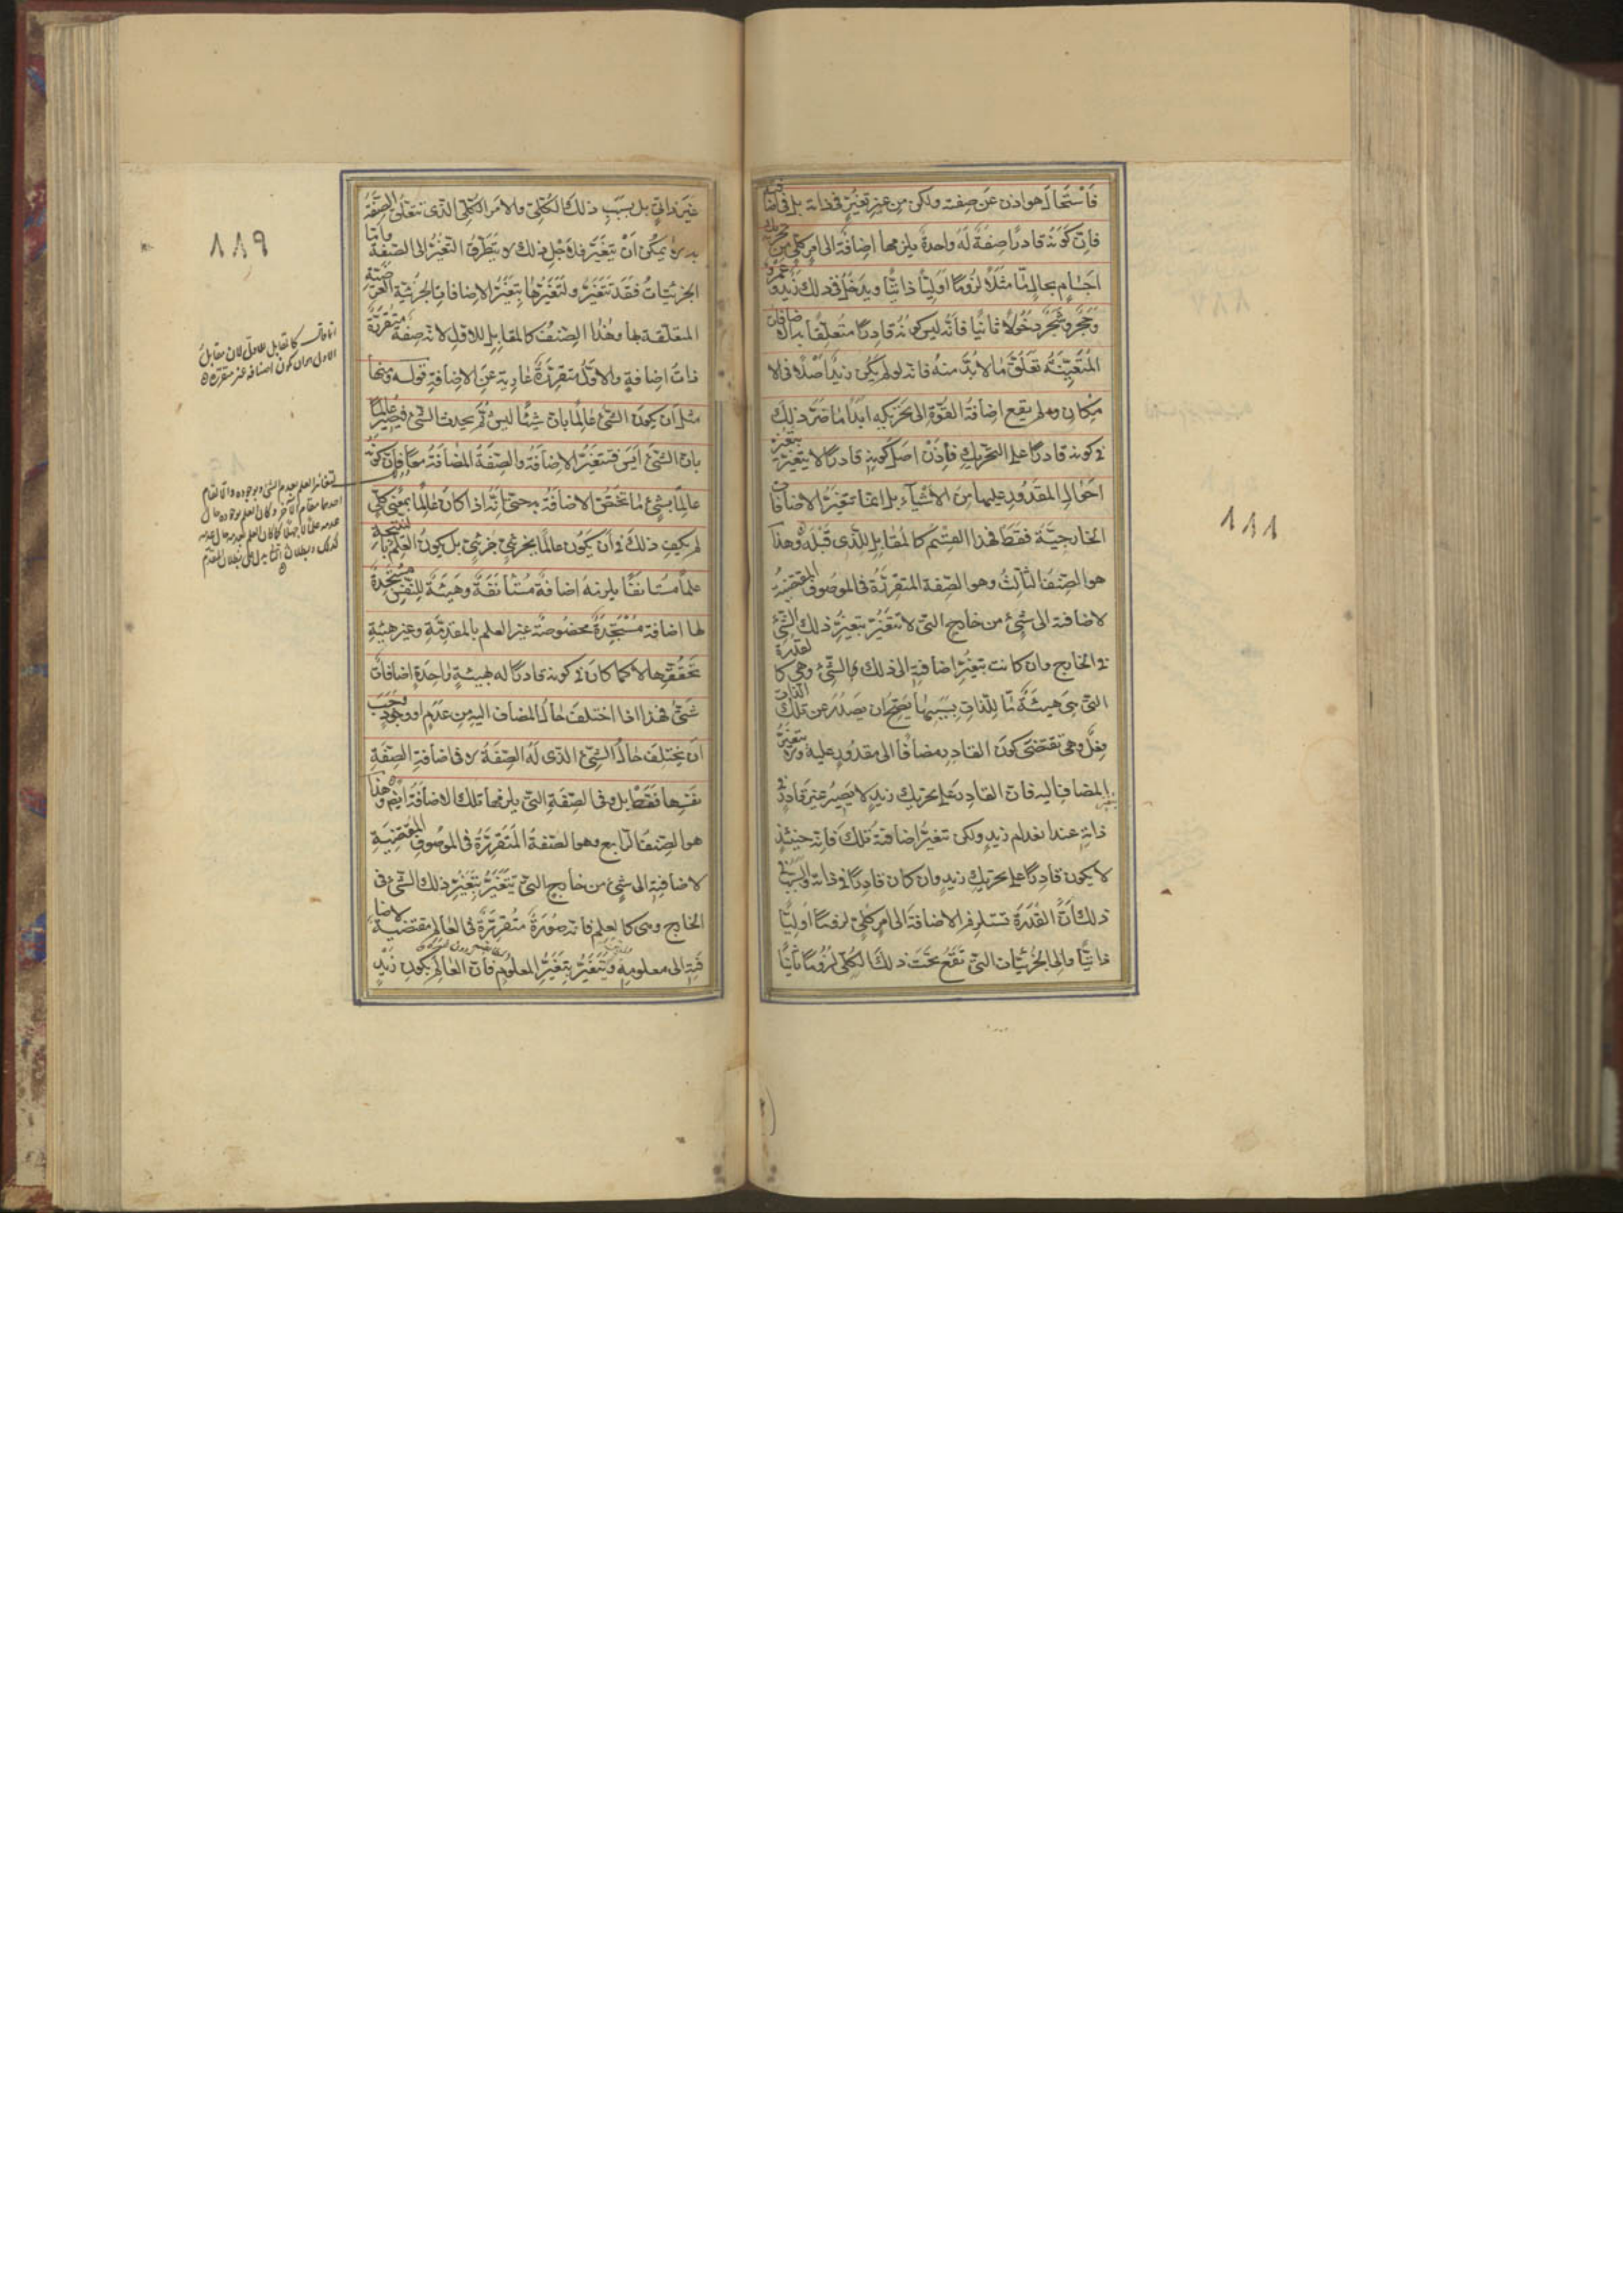 فاستحال هو اذن عن صفته ولكن من غير تغير في ذاته بل في اضافته
فان كونه قادرا صفة له واحدة يلزمها اضافة الى امر كلي من تحريك
اجسام بحال ما مثلا لزوما اوليا ذاتيا ويدخل في ذلك زيد وعمرو
وحجر وشجر دخولا ثانيا فانه ليس كونه قادرا متعلقا به الاضافات
المتعينة تعلق ما لا بد منه فانه لو لم يكن زيد اصلا في الا
مكان ولم يقع اضافة القوة الى تحريكه ابدا ما ضر ذلك
في كونه قادرا على التحريك فاذن اصل كونه قادرا لا يتغير بتغير
احوال المقدور عليها من الاشياء بل انما تتغير الاضافات
الخارجية فقط فهذا القسم كالمقابل للذي قبله وهذا
هو الصنف الثالث وهو الصفة المتقررة في الموصوف المقتضية
لاضافته الى شيء من خارج التي لا تتغير بتغير ذلك الشيء
في الخارج وان كانت تتغير اضافته الى ذلك الشيء وهي كالقدرة
التي هي هيئة ما للذات بسببها يصح ان يصدر عن تلك الذات
فعل وهي تقتضي كون القادر مضافا الى مقدور عليه ولا يتغير بتغير
المضاف اليه فان القادر على تحريك زيد لا يصير غير قادر في
ذاته عند انعدام زيد ولكن تتغير اضافته تلك فانه حينئذ
لا يكون قادرا على تحريك زيد وان كان قادرا في ذاته والسبب في
ذلك ان القدرة تستلزم الاضافة الى امر كلي لزوما اوليا
ذاتيا والى الجزئيات التي تقع تحت ذلك الكلي لزوما ثانيا
١٨٨
غير ذاتي بل بسبب ذلك الكلي والامر الكلي الذي تتعلق الصفة
به لا يمكن ان يتغير فلاجل ذلك لا يتطرق التغير الى الصفة واما
الجزئيات فقد تتغير ولتغيرها تتغير الاضافات الجزئية العرضية
المتعلقة بها وهذا الصنف كالمقابل للاول لانه صفة متقررة
ذات اضافة والاول متقررة عارية عن الاضافة قوله ومنها
مثل ان يكون الشيء عالما بان شيئا ليس ثم يحدث الشيء فيصير عالما
بان الشيء ايس فتتغير الاضافة والصفة المضافة معا فان كونه
عالما بشيء ما تختص الاضافة به حتى انه اذا كان عالما بمعنى كلي
لم يكف ذلك في ان يكون عالما بجزئي جزئي بل يكون العلم بالنتيجة
علما مستانفا يلزمه اضافة مستانفة وهيئة للنفس مستجدة
لها اضافة مستجدة مخصوصة غير العلم بالمقدمة وغير هيئة
تحققها لا كما كان في كونه قادرا له بهيئة واحدة اضافات
شتى فهذا اذا اختلف حال المضاف اليه من عدم او وجود وجب
ان يختلف حال الشيء الذي له الصفة لا في اضافة الصفة
نفسها فقط بل وفي الصفة التي يلزمها تلك الاضافة ايضا وهذا
هو الصنف الرابع وهو الصفة المتقررة في الموصوف المقتضية
لاضافته الى شيء من خارج التي تتغير بتغير ذلك الشيء في
الخارج وهي كالعلم فانه صورة متقررة في العالم مقتضية لاضا
فته الى معلومه وتتغير بتغير المعلوم فان العالم بكون زيد
١٨٩